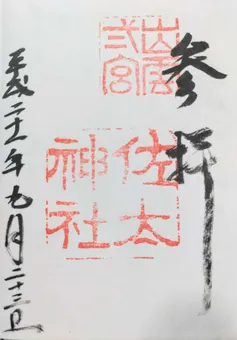 参拝
出雲
弐宮
佐太
神社
平成二十一年九月二十三日